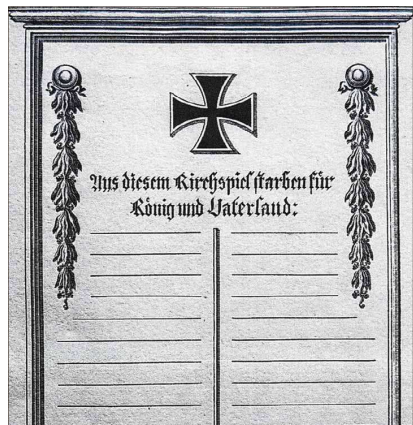 Aus diesem Kirchspiel starben für
König und Vaterland: